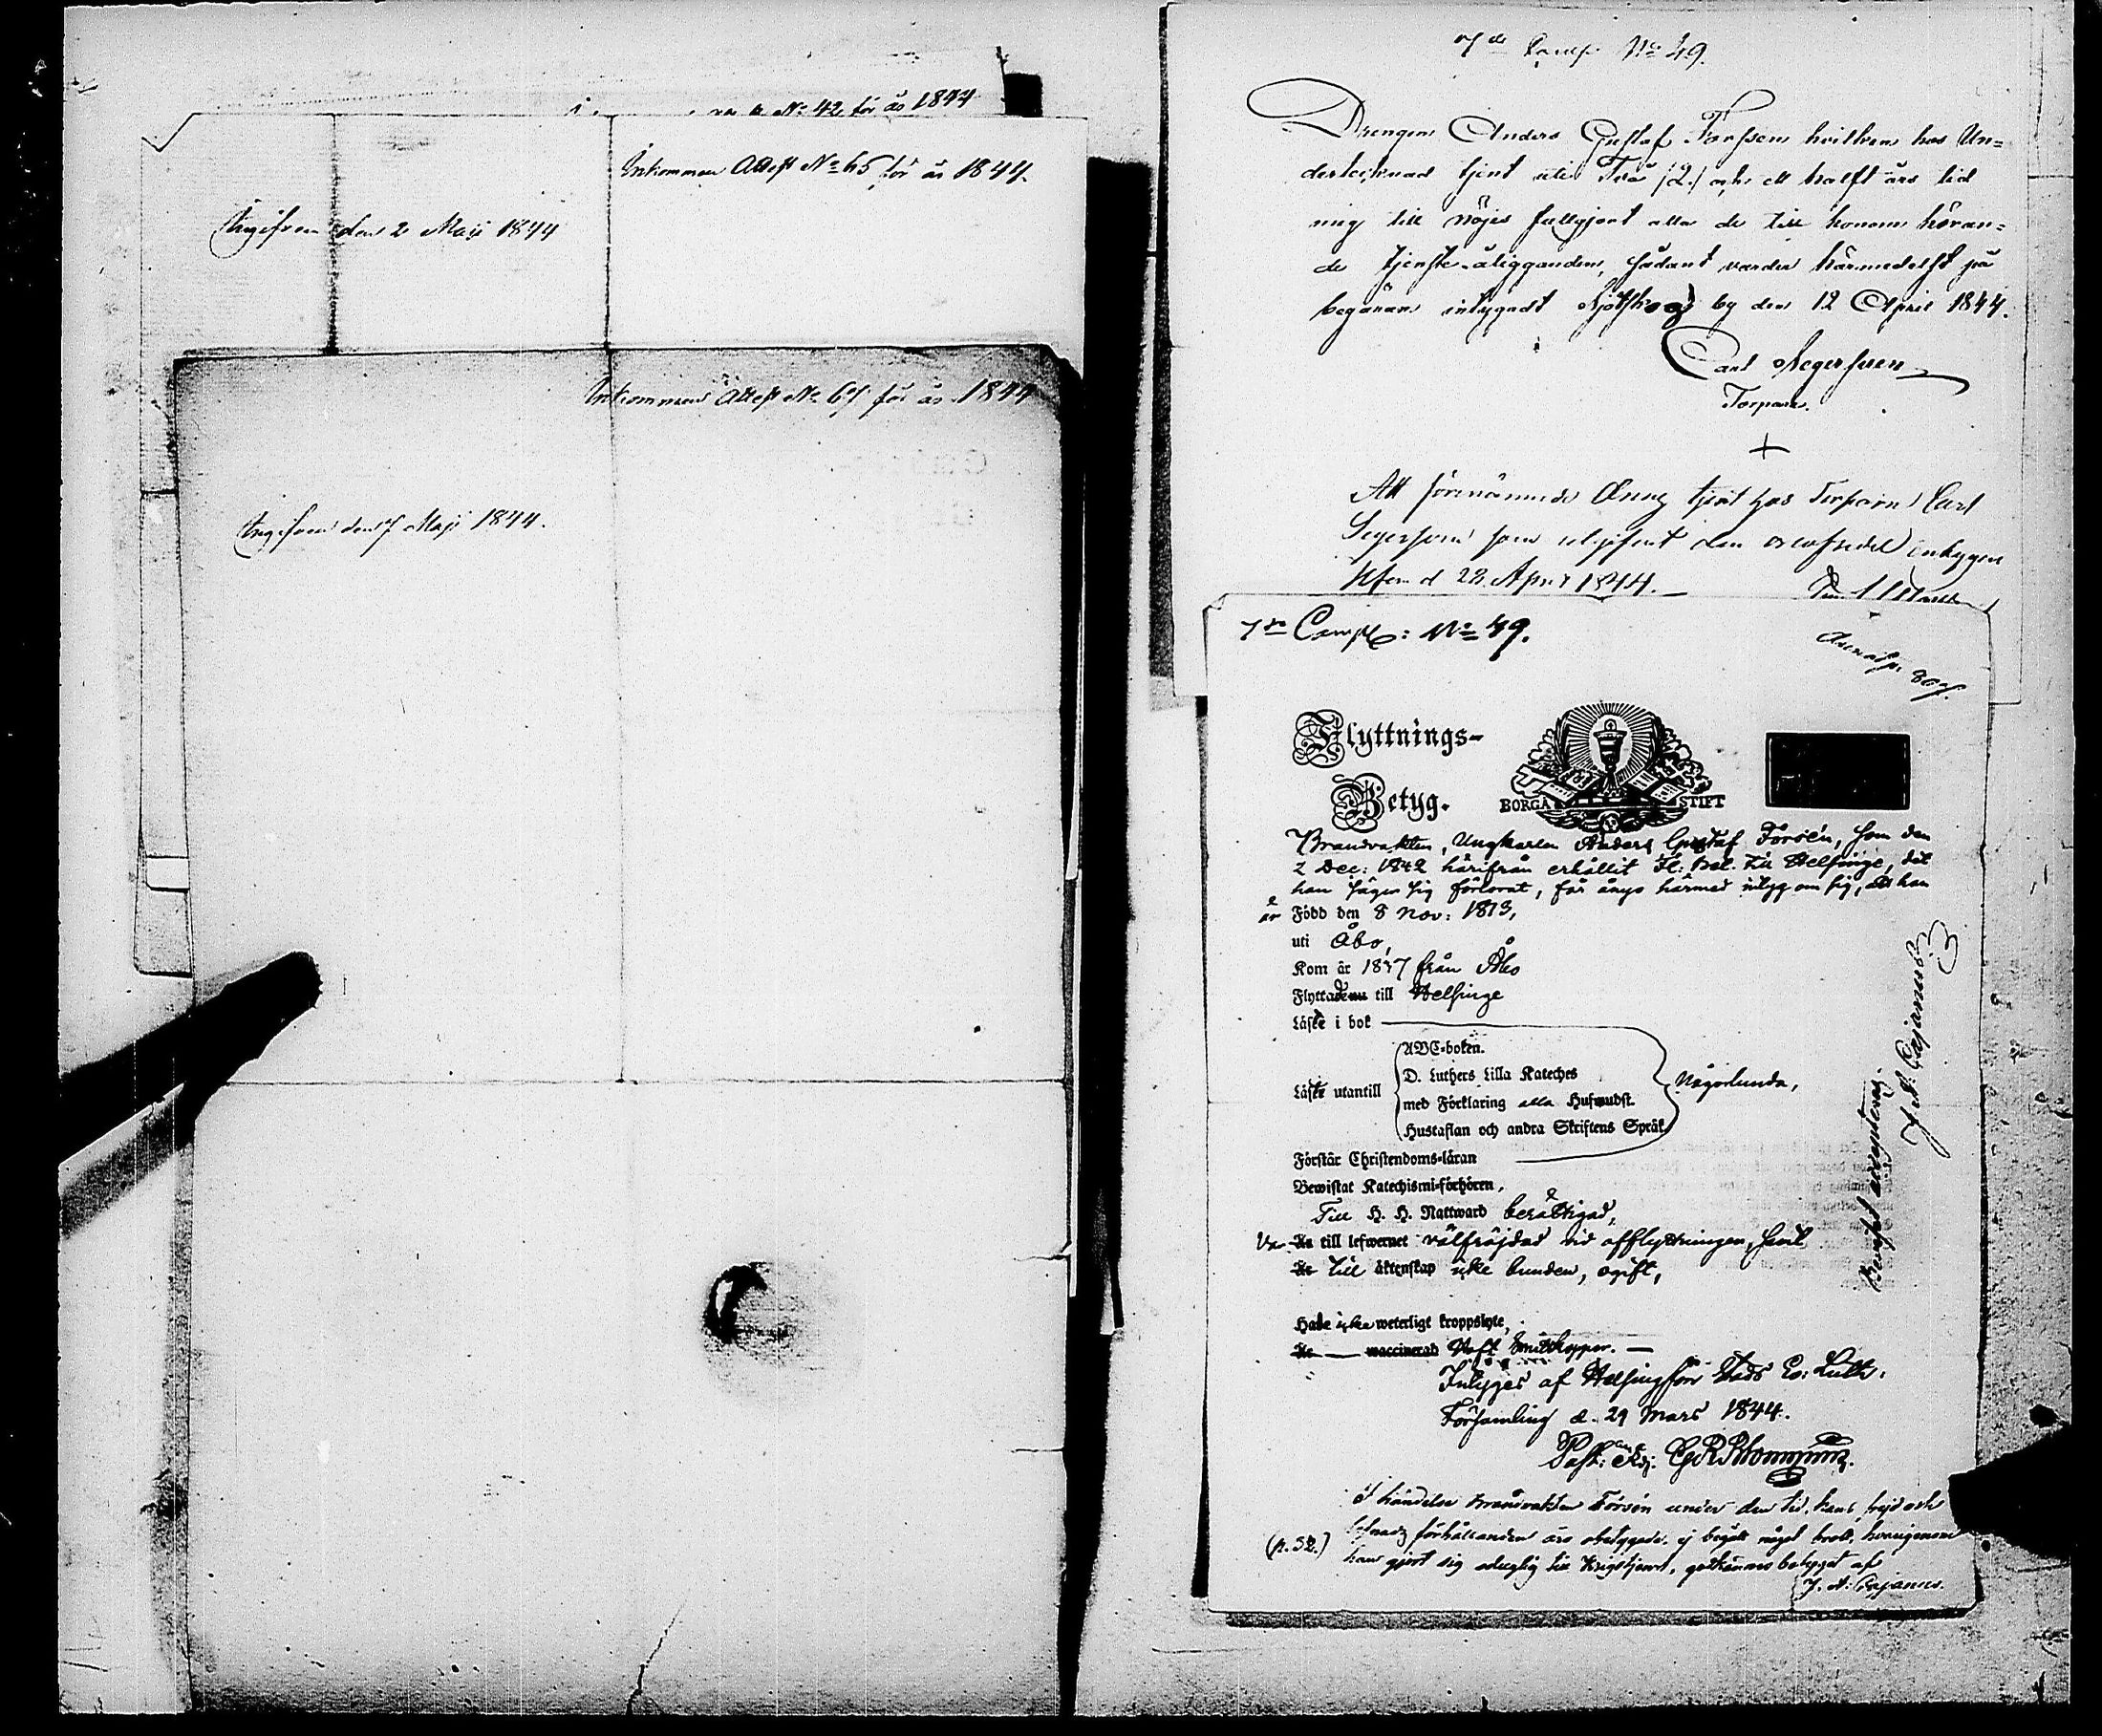 för år 1844
Inkommen Attest No 65 för år 1844.
Ingifven den 2 Maji 1844
Inkommen Attest No 67 för år 1844
Ingifven den 7 Maji 1844.
7de Comp No 49.
Drengen Anders Gustaf Forssen hvilken hos Un=
dertecknad tjent uti Två /2./ och ett halft års tid
mig till nöjes fullgjort alla de till honom höran=
de tjenste-åligganden, sådant varder härmedelst på
begäran intygadt by den 12 April 1844.
Carl Segersven
Torpare.
Att förenämnde Dräng tjent hos Torparen Carl
Segersven som utgifvit den orlofsedel intygar
d 22 April 1844.
7de Comp: No 49.
807.
Flyttnings-
Betyg.
BORGÅ STIFT
Brandvakten, Ungkarlen Anders Gustaf Forsén, som den
2 Dec: 1842 härifrån erhållit Fl: Bet. till Helsinge, det
han säger sig förlorat, får ånyo härmed intyg om sig, att han
är Född den 8 Nov: 1813,
uti Åbo,
Kom år 1837 från Åbo
Flyttade till Helsinge
Läste i bok
ABC-boken.
D. Luthers Lilla Kateches
Läste utantill
med Förklaring alla Hufwudst.
Hustaflan och andra Skriftens Språk
Någorlunda,
Förstår Christendoms-läran
Bewistat Katechismi-förhören,
Till H. H. Nattward berättigad,
Var till lefwernet välfrejdad vid afflyttningen, samt
till äktenskap icke bunden, ogift,
Hade icke weterligt kroppslyte,
waccinerad Haft Smittkoppor.
Intygas af Helsingfors Stads Ev: Luth:
Församling d. 29 Mars 1844.
Past: Adj.
I händelse Brandvakten Forsén under den tid, hans frejd och
lefnads förhållanden äro obetygade, ej begått något brott, hvarigenom
(p. 52.) han gjort sig oduglig till Krigstjenst, godkännes betyget af
J. A: Cajanus.
Betyget accepteras.
J. A. Cajanus